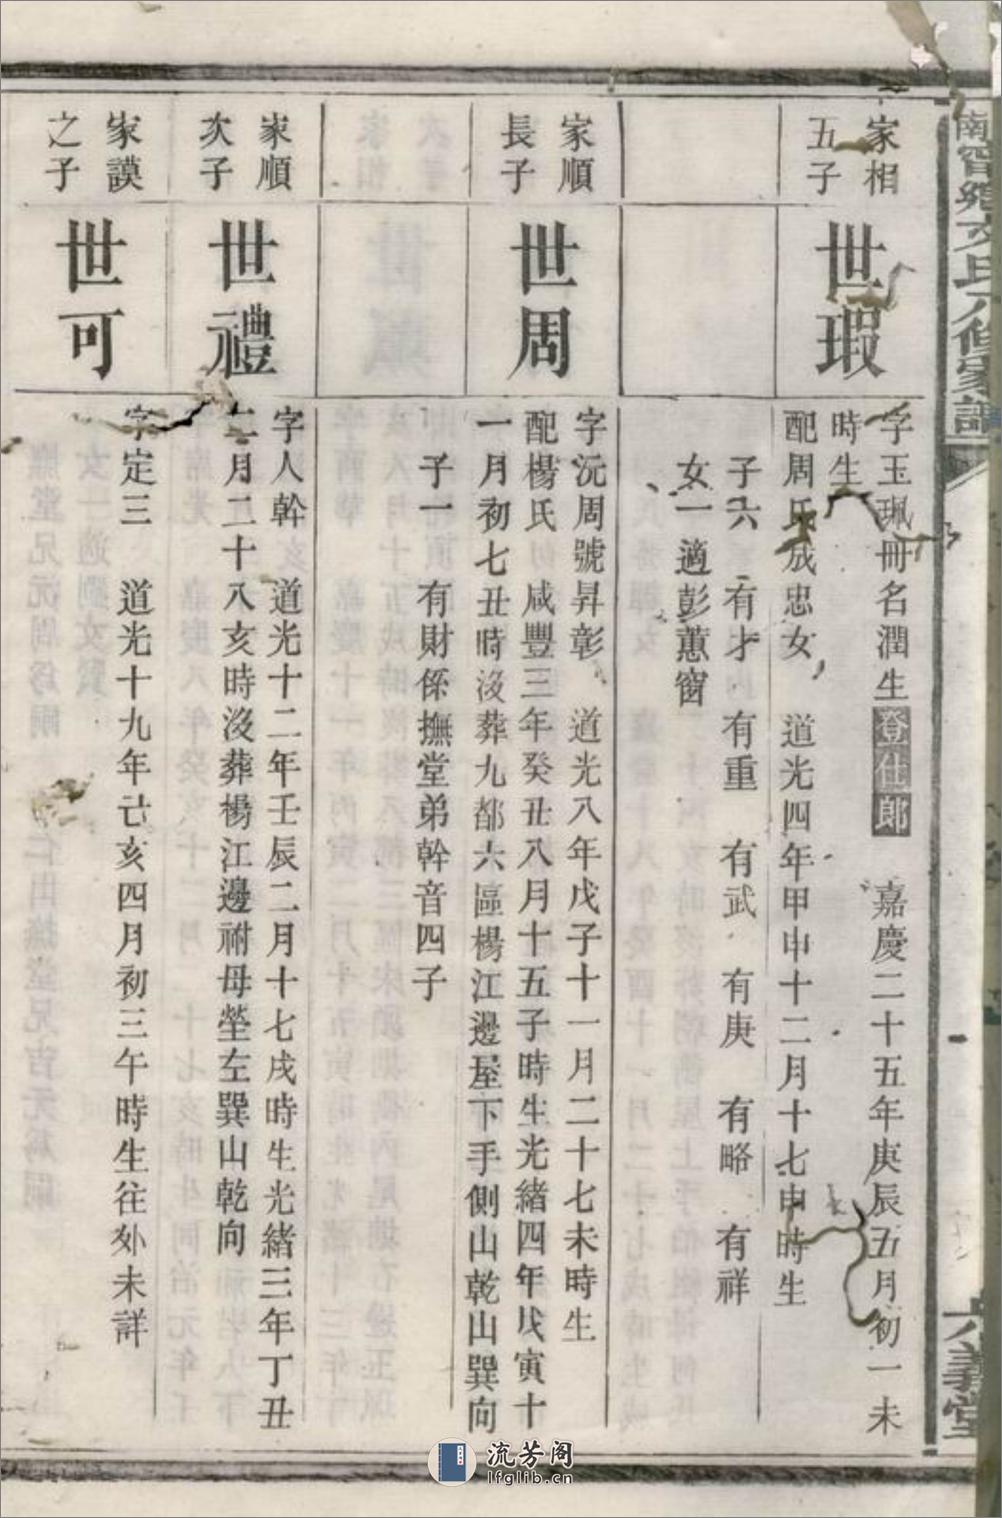 家相
五子
世瑕
字玉珮冊名潤生登仕郎 嘉慶二十五年庚辰五月初一未
時生
配周氏成忠女 道光四年甲申十二月十七申時生
子六 有才 有重 有武 有庚 有略 有祥
女一適彭蕙窗
家順
長子
世周
字沅周號昇彰 道光八年戊子十一月二十七未時生
配楊氏 咸豐三年癸丑八月十五子時生光緒四年戊寅十
一月初七丑時沒葬九都六區楊江邊屋下手側山乾山巽向
子一 有財係撫堂弟幹音四子
家順
次子
世禮
字人幹 道光十二年壬辰二月十七戌時生光緒三年丁丑
二月二十八亥時沒葬楊江邊祔母塋左巽山乾向
家謨
之子
世可
字定三 道光十九年己亥四月初三午時生往外未詳
氏六修家譜
六義堂
流芳阁
lfglib.cn